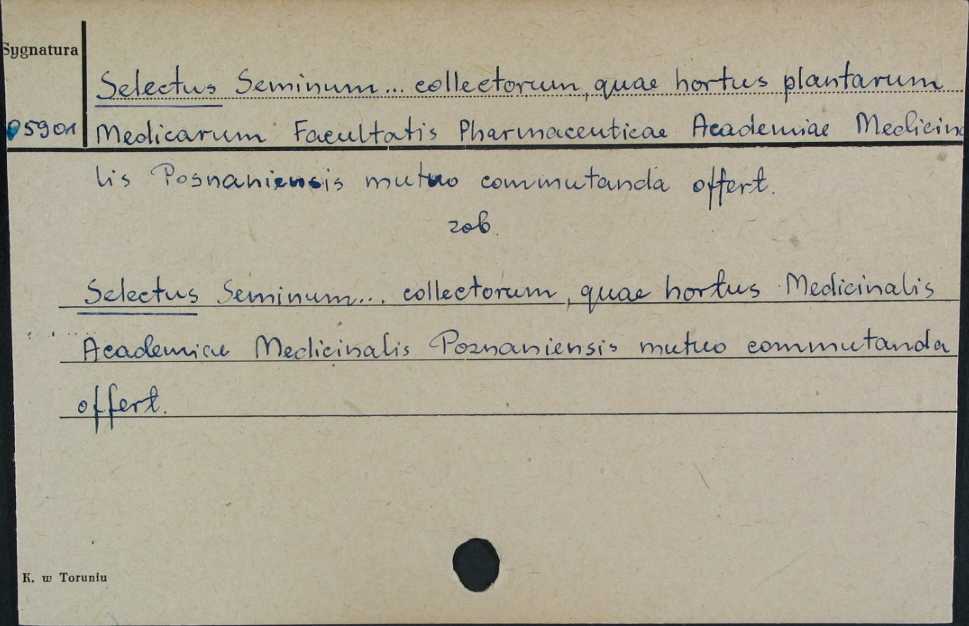 Sygnatura
Selectus Seminum... collectorum, quae hortus plantarum
05901 Medicarum Facultatis Pharmaceuticae Academiae Medicin
lis Posnaniensis mutuo commutanda offert.
zob.
Selectus Seminum... collectorum, quae hortus Medicinalis
Academiae Medicinalis Poznaniensis mutuo commutanda
offert.
K. w Toruniu